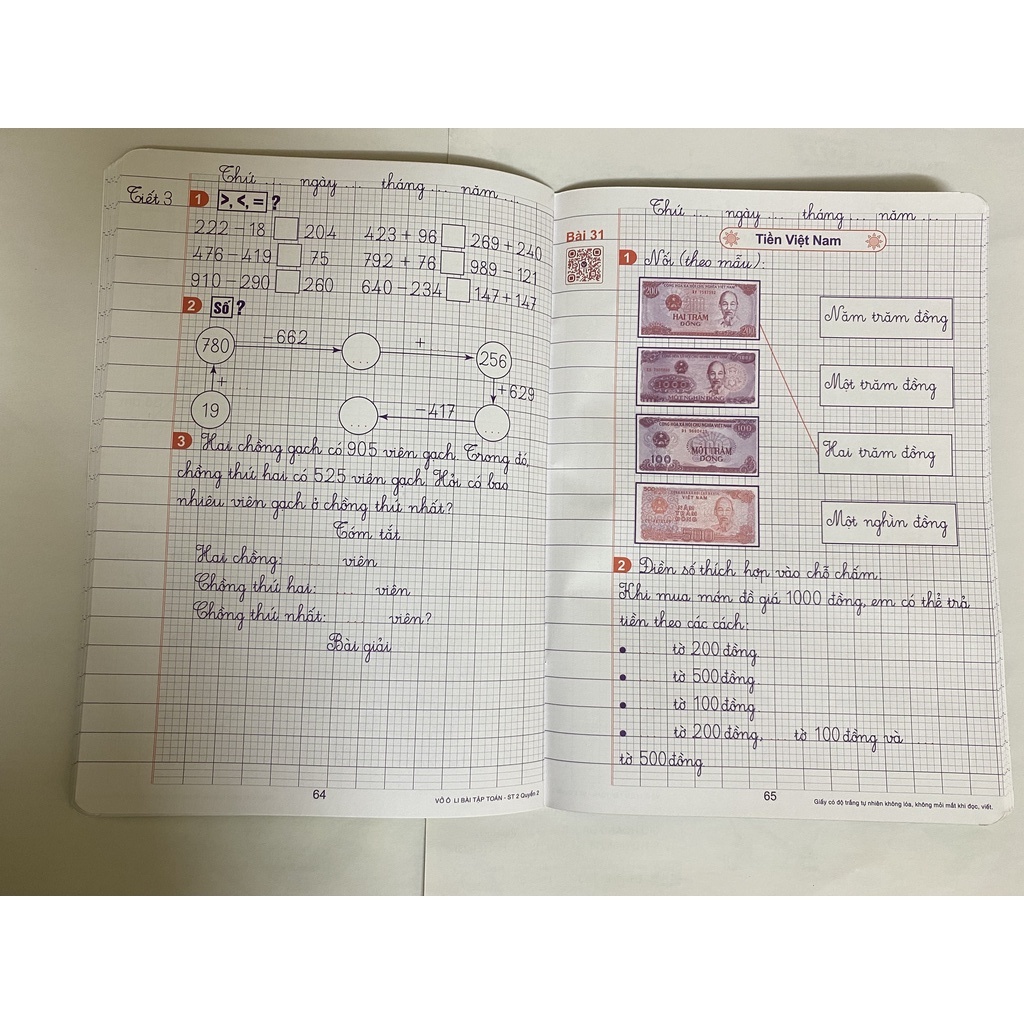 Thứ ... ngày ... tháng ... năm ...
Tiết 3
1 >, <, = ?
222 – 18 204 423 + 96 269 + 240
476 – 419 75 792 + 76 989 – 121
910 – 290 260 640 – 234 147 + 147
2 Số ?
780 – 662 ... + ... 256
+ ... + 629
19 ... – 417 ...
3 Hai chồng gạch có 905 viên gạch. Trong đó,
chồng thứ hai có 525 viên gạch. Hỏi có bao
nhiêu viên gạch ở chồng thứ nhất?
Tóm tắt
Hai chồng: ... viên
Chồng thứ hai: ... viên
Chồng thứ nhất: ... viên?
Bài giải
64
VỞ Ô LI BÀI TẬP TOÁN - ST 2 Quyển 2
Thứ ... ngày ... tháng ... năm ...
Bài 31
Tiền Việt Nam
1 Nối (theo mẫu):
200
CỘNG HÒA XÃ HỘI CHỦ NGHĨA VIỆT NAM
HAI TRĂM
ĐỒNG
200
Năm trăm đồng
1000
MỘT NGHÌN ĐỒNG
Một trăm đồng
CỘNG HÒA XÃ HỘI CHỦ NGHĨA VIỆT NAM
100
MỘT TRĂM
ĐỒNG
100
Hai trăm đồng
500
VIỆT NAM
NĂM
TRĂM
ĐỒNG
500
Một nghìn đồng
2 Điền số thích hợp vào chỗ chấm:
Khi mua món đồ giá 1000 đồng, em có thể trả
tiền theo các cách:
• ... tờ 200 đồng.
• ... tờ 500 đồng.
• ... tờ 100 đồng.
• ... tờ 200 đồng, ... tờ 100 đồng và ...
tờ 500 đồng
65
Giấy có độ trắng tự nhiên không lóa, không mỏi mắt khi đọc, viết.